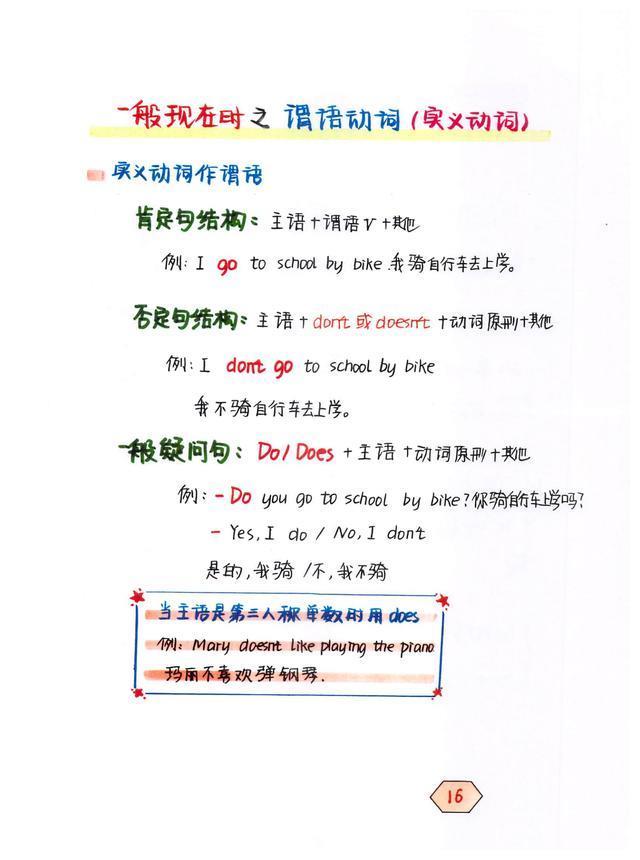 一般现在时之 谓语动词(实义动词)
实义动词作谓语
肯定句结构: 主语+谓语V+其他
例: I go to school by bike.我骑自行车去上学。
否定句结构: 主语+don't或doesn't+动词原形+其他
例: I don't go to school by bike
我不骑自行车去上学。
一般疑问句: Do/Does+主语+动词原形+其他
例: -Do you go to school by bike?你骑自行车上学吗?
- Yes, I do / No, I don't
是的,我骑 /不,我不骑
当主语是第三人称单数时用does
例: Mary doesn't like playing the piano
玛丽不喜欢弹钢琴.
16